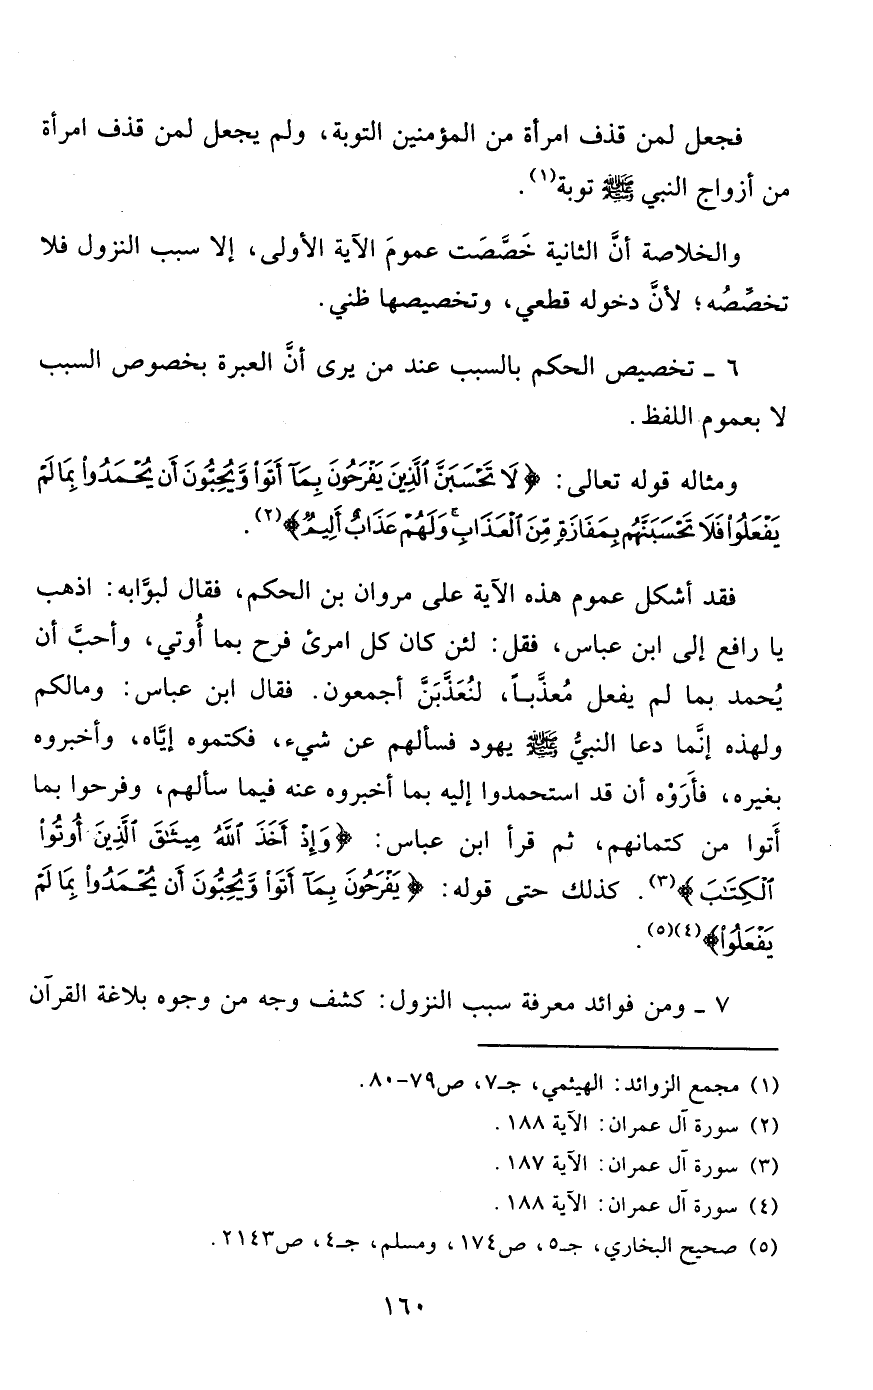 فجعل لمن قذف امرأة من المؤمنين التوبة، ولم يجعل لمن قذف امرأة
من أزواج النبي ﷺ توبة(١).
والخلاصة أنَّ الثانية خَصَّصَت عمومَ الآية الأولى، إلا سبب النزول فلا
تخصِّصُه؛ لأنَّ دخوله قطعي، وتخصيصها ظني.
٦ ـ تخصيص الحكم بالسبب عند من يرى أنَّ العبرة بخصوص السبب
لا بعموم اللفظ.
ومثاله قوله تعالى: ﴿لَا تَحۡسَبَنَّ ٱلَّذِينَ يَفۡرَحُونَ بِمَآ أَتَواْ وَّيُحِبُّونَ أَن يُحۡمَدُواْ بِمَا لَمۡ
يَفۡعَلُواْ فَلَا تَحۡسَبَنَّهُم بِمَفَازَةٖ مِّنَ ٱلۡعَذَابِۖ وَلَهُمۡ عَذَابٌ أَلِيمٞ﴾(٢).
فقد أشكل عموم هذه الآية على مروان بن الحكم، فقال لبوَّابه: اذهب
يا رافع إلى ابن عباس، فقل: لئن كان كل امرئ فرح بما أُوتي، وأحبَّ أن
يُحمد بما لم يفعل مُعذَّبـاً، لنُعَذَّبَنَّ أجمعون. فقال ابن عباس: ومالكم
ولهذه إنَّما دعا النبيُّ ﷺ يهود فسألهم عن شيء، فكتموه إيَّاه، وأخبروه
بغيره، فأَرَوْه أن قد استحمدوا إليه بما أخبروه عنه فيما سألهم، وفرحوا بما
أَتوا من كتمانهم، ثم قرأ ابن عباس: ﴿وَإِذۡ أَخَذَ ٱللَّهُ مِيثَٰقَ ٱلَّذِينَ أُوتُواْ
ٱلۡكِتَٰبَ﴾(٣). كذلك حتى قوله: ﴿يَفۡرَحُونَ بِمَآ أَتَواْ وَّيُحِبُّونَ أَن يُحۡمَدُواْ بِمَا لَمۡ
يَفۡعَلُواْ﴾(٤)(٥).
٧ ـ ومن فوائد معرفة سبب النزول: كشف وجه من وجوه بلاغة القرآن
(١) مجمع الزوائد: الهيثمي، جـ٧، ص٧٩-٨٠.
(٢) سورة آل عمران: الآية ١٨٨.
(٣) سورة آل عمران: الآية ١٨٧.
(٤) سورة آل عمران: الآية ١٨٨.
(٥) صحيح البخاري، جـ٥، ص١٧٤، ومسلم، جـ٤، ص٢١٤٣.
١٦٠